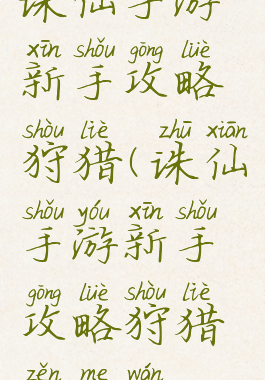 诛仙手游
xīn shǒu gōng lüè
新手攻略
shòu liè zhū xiān
狩猎(诛仙
shǒu yóu xīn shǒu
手游新手
gōng lüè shòu liè
攻略狩猎
zěn me wán